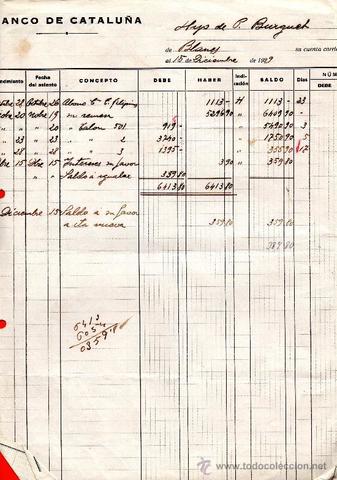 BANCO DE CATALUÑA
Hijos de P. Burguet
de Blanes su cuenta corrie
al 15 Diciembre de 1929
ncimiento Fecha del asiento CONCEPTO DEBE HABER Indi- cación SALDO Días NÚM DEBE
28 Octubre 26 Abono 1113 - H 1113 - 23
20 Nbre 19 m remesa 5296 90 " 6409 90
" " 20 " talon 501 919 - " 5490 90 3
" 23 " 23 " " 2 3740 - " 1750 90 5
" 28 " 28 " " 3 1395 - " 355 90 17
15 Dbre 15 Intereses m favor 3 90 " 359 80
Saldo a igualar 359 80
6413 80 6413 80
Diciembre 15 Saldo á m favor
a cta nueva 359 80 359 80
359 80
6413
6054
0359
www.todocoleccion.net